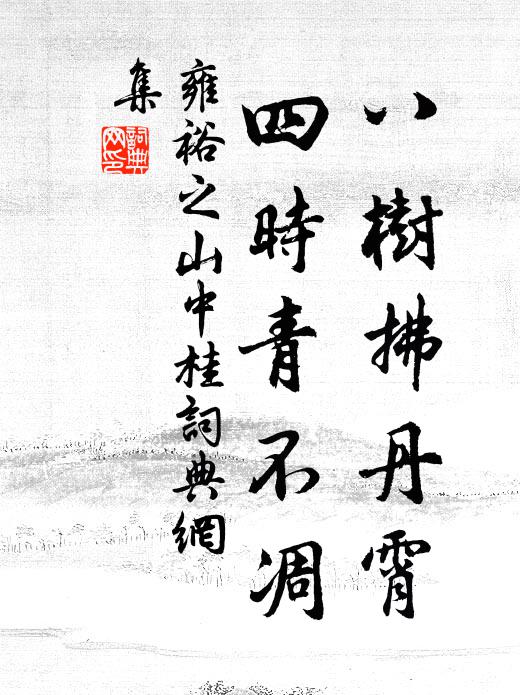 八樹拂丹霄
四時青不凋
雍裕之山中桂詞典網
集
詞典
网印